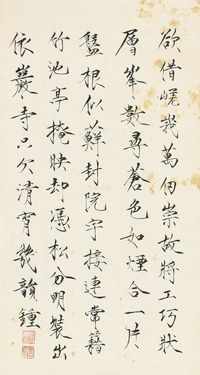 欲借嵯峨萬仞崇故將工巧狀
層峯數尋蒼色如煙合一片
盤根似蘚封院宇接連常籍
竹池亭掩映却憑松分明裝出
依巖寺只欠清宵幾韻鐘